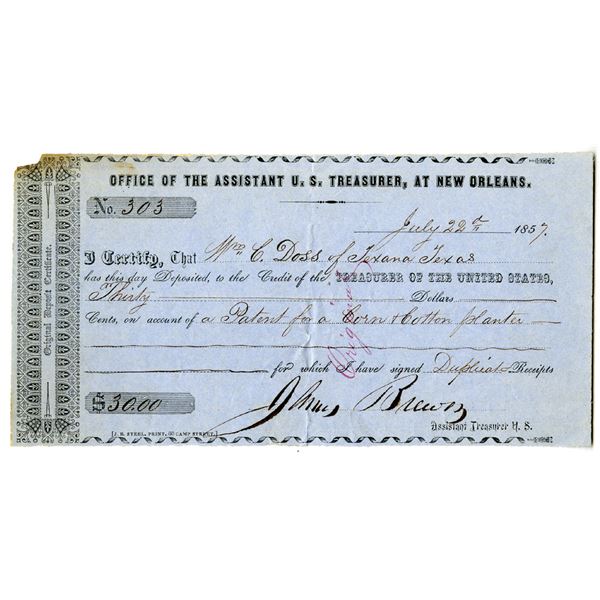 OFFICE OF THE ASSISTANT U. S. TREASURER, AT NEW ORLEANS.
No. 303
July 22d 1857.
I Certify, That Wm C. Doss of Texana Texas
has this day Deposited, to the Credit of the TREASURER OF THE UNITED STATES,
Thirty Dollars
Cents, on account of a Patent for a Corn & Cotton planter
for which I have signed Duplicate Receipts
$30.00
Brewer
Assistant Treasurer U. S.
[J. B. STEEL, PRINT, 60 CAMP STREET.]
Original Deposit Certificate.
Original